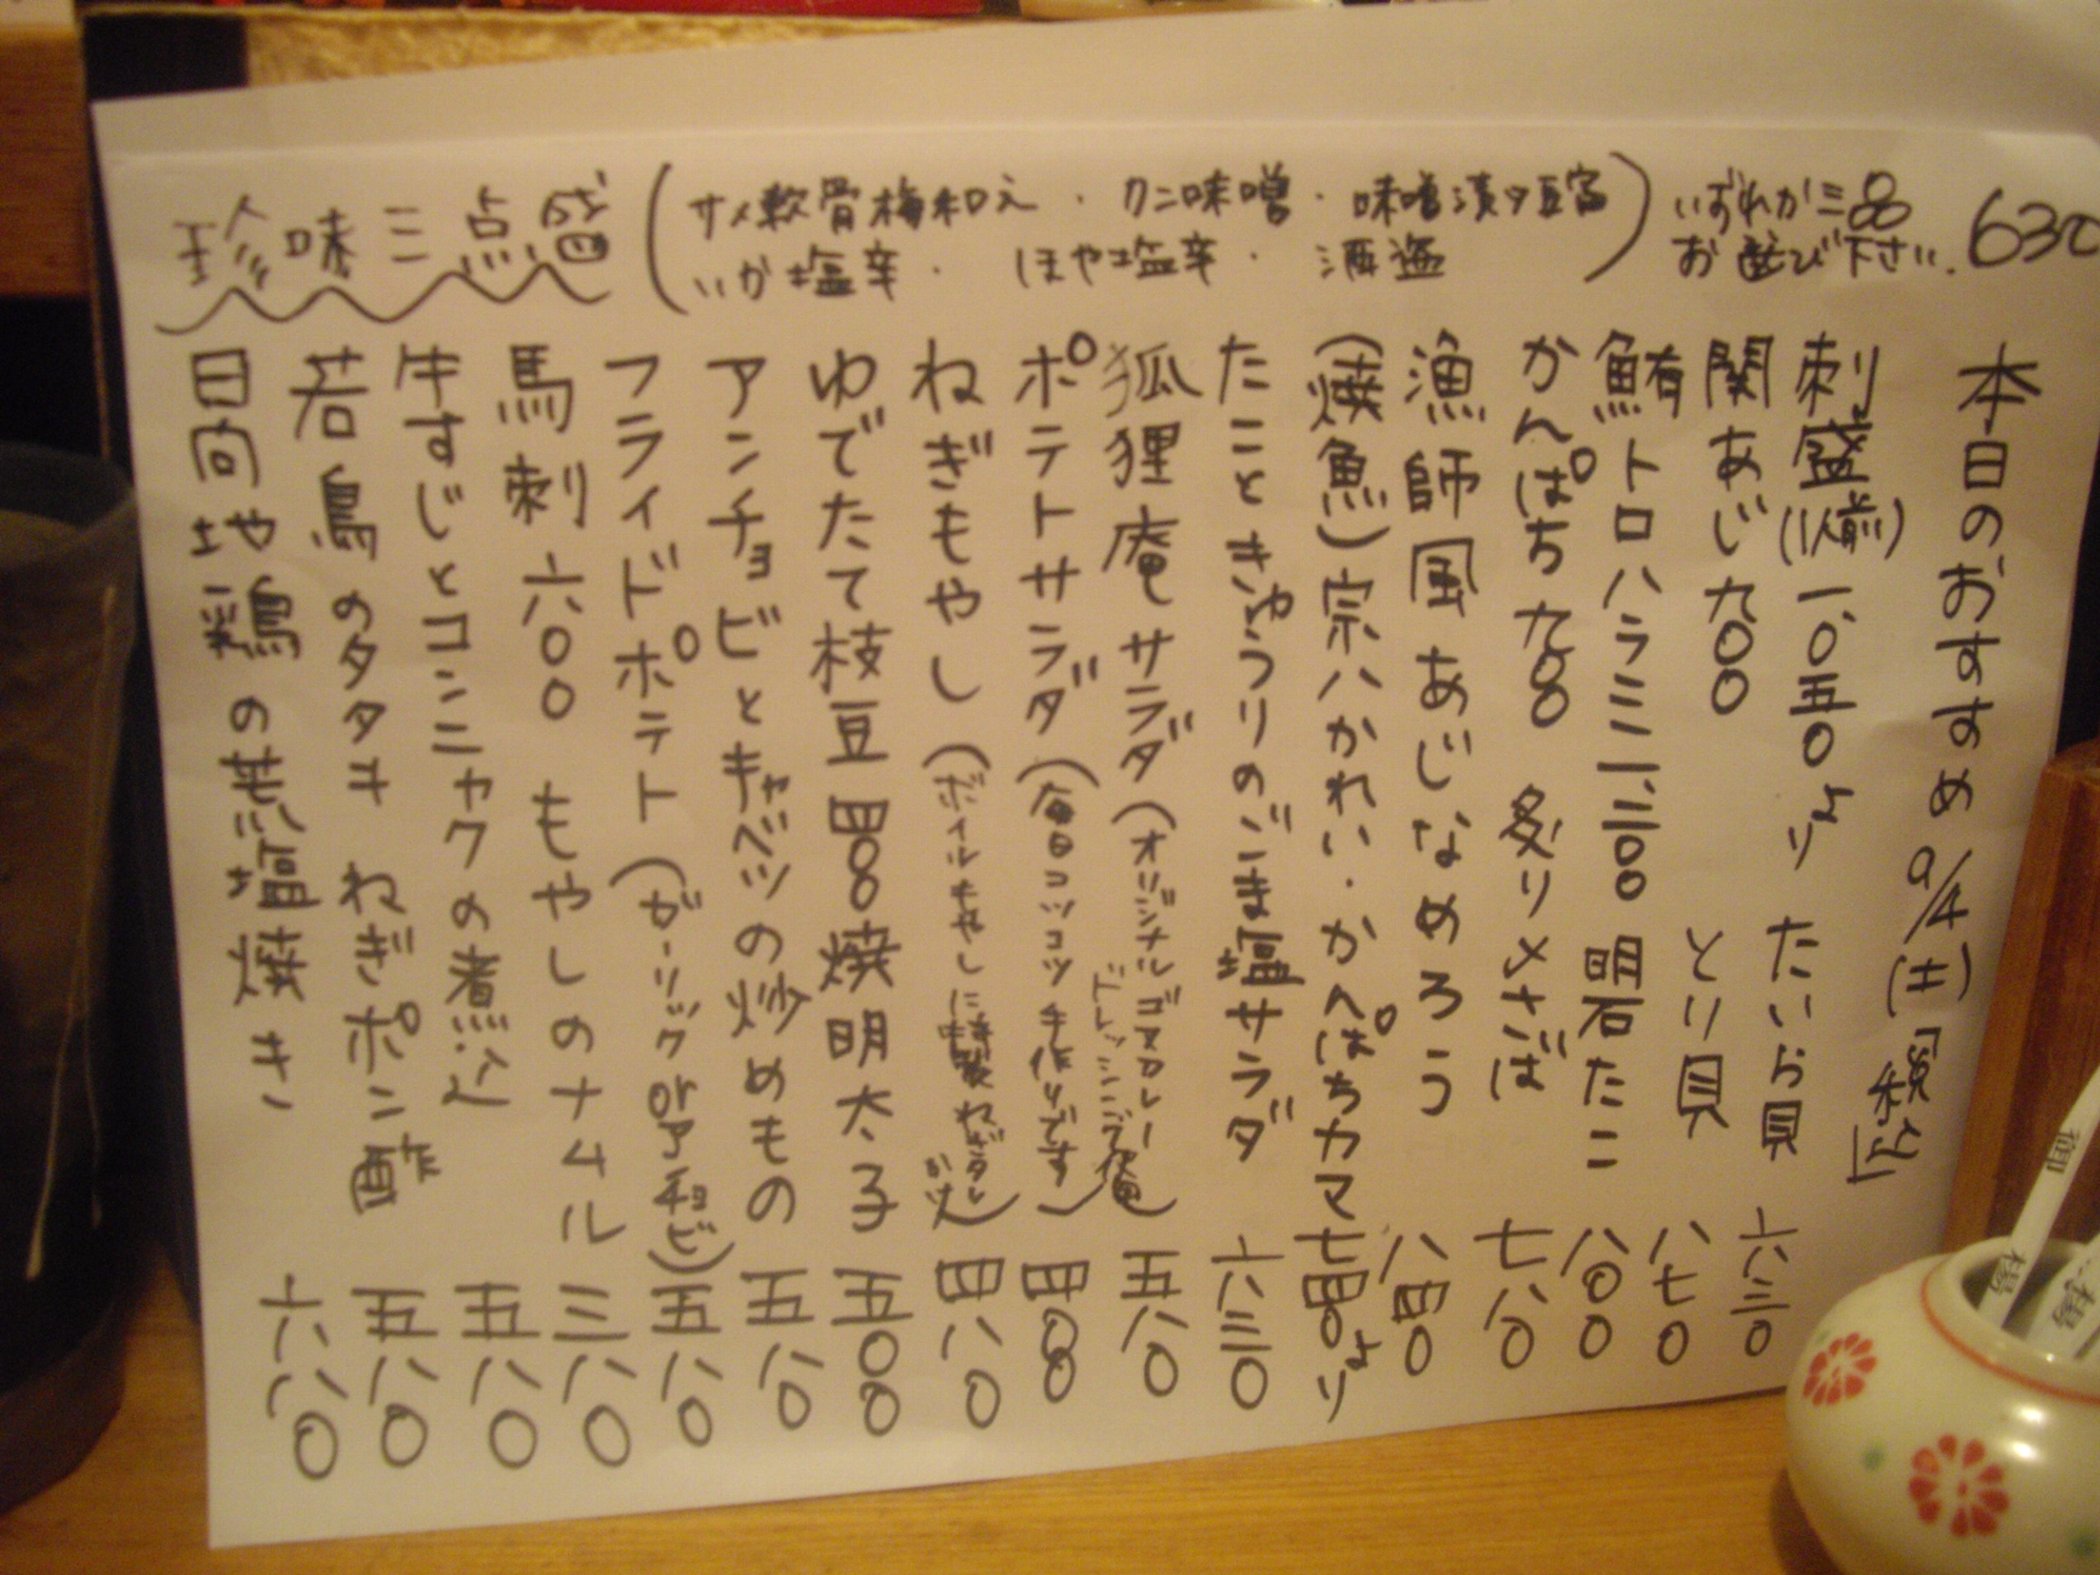 珍味三点盛（サメ軟骨梅和え・クンニ味噌・味噌漬ケ豆富
いか塩辛・ほや塩辛・酒盗）いずれか三品
お選び下さい。630
本日のおすすめ 9/4(土)「税込」
刺盛(1人前)一、〇五〇より たいら貝 六三〇
関あじ 九〇〇 とり貝 八七〇
鮪トロハラミ 一、三〇〇 明石たこ 八〇〇
かんぱち 九〇〇 炙り〆さば 七八〇
漁師風あじなめろう 八四〇
(焼魚)宗八かれい・かんぱちカマ 七四〇より
たこときゅうりのごま塩サラダ 六三〇
狐狸庵サラダ(オリジナルゴマカレードレッシング使用) 五八〇
ポテトサラダ(毎日コツコツ手作りです) 四〇〇
ねぎもやし(ボイルもやしに特製ねぎタレかけ) 四八〇
ゆでたて枝豆 四〇〇 焼明太子 五〇〇
アンチョビとキャベツの炒めもの 五八〇
フライドポテト(ガーリックorアンチョビ) 五八〇
馬刺 六〇〇 もやしのナムル 三八〇
牛すじとコンニャクの煮込 五八〇
若鳥のタタキ ねぎポン酢 五八〇
日向地鶏の荒塩焼き 六八〇
御
楊
楊